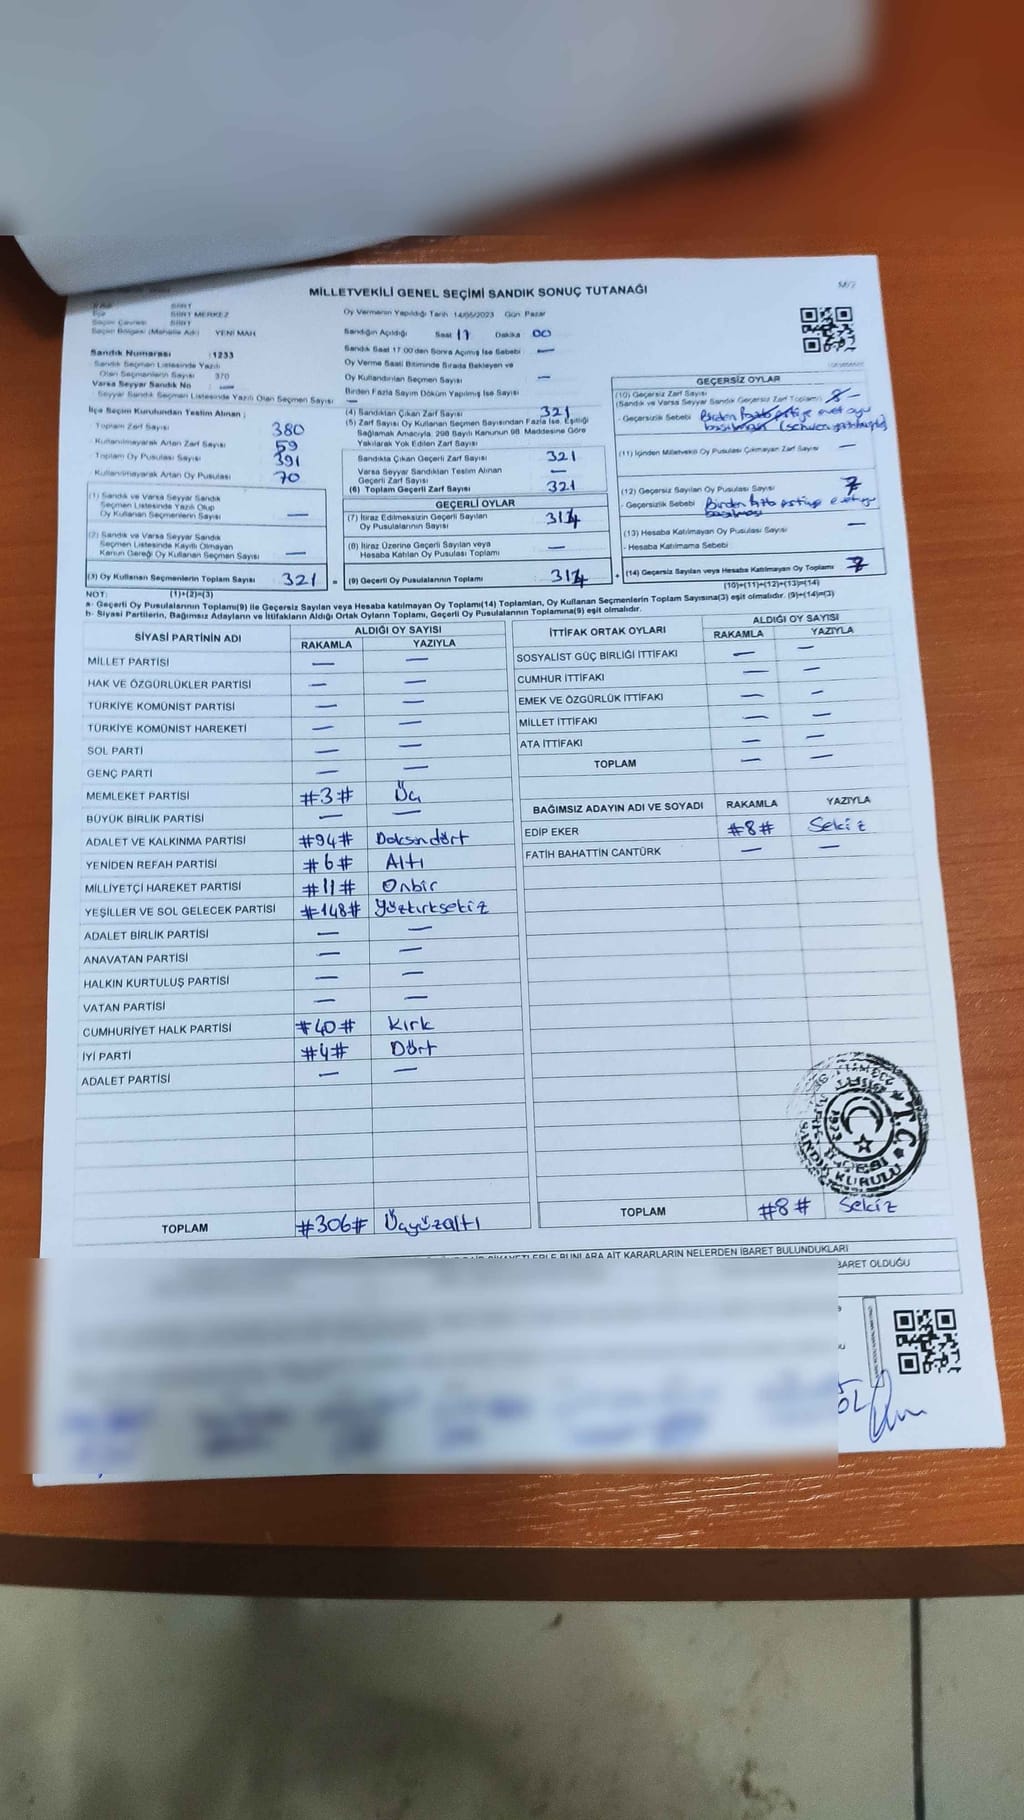 MİLLETVEKİLİ GENEL SEÇİMİ SANDIK SONUÇ TUTANAĞI
M/2
SİİRT
İlçe SİİRT MERKEZ
Seçim Çevresi SİİRT
Seçim Bölgesi (Mahalle Adı) YENİ MAH
Oy Vermenin Yapıldığı Tarih 14/05/2023 Gün Pazar
Sandığın Açıldığı Saat 17 Dakika 00
Sandık Saat 17:00'den Sonra Açılmış İse Sebebi —
Sandık Numarası :1233
Sandık Seçmen Listesinde Yazılı
Olan Seçmenlerin Sayısı 370
Varsa Seyyar Sandık No —
Seyyar Sandık Seçmen Listesinde Yazılı Olan Seçmen Sayısı —
Oy Verme Saati Bitiminde Sırada Bekleyen ve
Oy Kullandırılan Seçmen Sayısı —
Birden Fazla Sayım Döküm Yapılmış İse Sayısı
İlçe Seçim Kurulundan Teslim Alınan ;
Toplam Zarf Sayısı 380
Kullanılmayarak Artan Zarf Sayısı 59
Toplam Oy Pusulası Sayısı 391
Kullanılmayarak Artan Oy Pusulası 70
(4) Sandıktan Çıkan Zarf Sayısı 321
(5) Zarf Sayısı Oy Kullanan Seçmen Sayısından Fazla İse, Eşitliği
Sağlamak Amacıyla, 298 Sayılı Kanunun 98. Maddesine Göre
Yakılarak Yok Edilen Zarf Sayısı
Sandıkta Çıkan Geçerli Zarf Sayısı 321
Varsa Seyyar Sandıktan Teslim Alınan
Geçerli Zarf Sayısı —
(6) Toplam Geçerli Zarf Sayısı 321
(1) Sandık ve Varsa Seyyar Sandık
Seçmen Listesinde Yazılı Olup
Oy Kullanan Seçmenlerin Sayısı
(2) Sandık ve Varsa Seyyar Sandık
Seçmen Listesinde Kayıtlı Olmayan
Kanun Gereği Oy Kullanan Seçmen Sayısı —
(3) Oy Kullanan Seçmenlerin Toplam Sayısı 321 =
GEÇERLİ OYLAR
(7) İtiraz Edilmeksizin Geçerli Sayılan
Oy Pusulalarının Sayısı 314
(8) İtiraz Üzerine Geçerli Sayılan veya
Hesaba Katılan Oy Pusulası Toplamı —
(9) Geçerli Oy Pusulalarının Toplamı 314 +
GEÇERSİZ OYLAR
(10) Geçersiz Zarf Sayısı
(Sandık ve Varsa Seyyar Sandık Geçersiz Zarf Toplamı)
- Geçersizlik Sebebi Birden fazla partiye evet oyu
basılması
(11) İçinden Milletvekili Oy Pusulası Çıkmayan Zarf Sayısı —
(12) Geçersiz Sayılan Oy Pusulası Sayısı 7
- Geçersizlik Sebebi Birden fazla partiye evet oyu
basılması
(13) Hesaba Katılmayan Oy Pusulası Sayısı —
- Hesaba Katılmama Sebebi
(14) Geçersiz Sayılan veya Hesaba Katılmayan Oy Toplamı 7
NOT: (1)+(2)=(3)
(10)+(11)+(12)+(13)=(14)
a- Geçerli Oy Pusulalarının Toplamı(9) ile Geçersiz Sayılan veya Hesaba katılmayan Oy Toplamı(14) Toplamları, Oy Kullanan Seçmenlerin Toplam Sayısına(3) eşit olmalıdır. (9)+(14)=(3)
b- Siyasi Partilerin, Bağımsız Adayların ve İttifakların Aldığı Ortak Oyların Toplamı, Geçerli Oy Pusulalarının Toplamına(9) eşit olmalıdır.
SİYASİ PARTİNİN ADI
ALDIĞI OY SAYISI
RAKAMLA YAZIYLA
MİLLET PARTİSİ — —
HAK VE ÖZGÜRLÜKLER PARTİSİ — —
TÜRKİYE KOMÜNİST PARTİSİ — —
TÜRKİYE KOMÜNİST HAREKETİ — —
SOL PARTİ — —
GENÇ PARTİ — —
MEMLEKET PARTİSİ #3# Üç
BÜYÜK BİRLİK PARTİSİ — —
ADALET VE KALKINMA PARTİSİ #94# Doksandört
YENİDEN REFAH PARTİSİ #6# Altı
MİLLİYETÇİ HAREKET PARTİSİ #11# Onbir
YEŞİLLER VE SOL GELECEK PARTİSİ #148# Yüzkırksekiz
ADALET BİRLİK PARTİSİ — —
ANAVATAN PARTİSİ — —
HALKIN KURTULUŞ PARTİSİ — —
VATAN PARTİSİ — —
CUMHURİYET HALK PARTİSİ #40# Kırk
İYİ PARTİ #4# Dört
ADALET PARTİSİ — —
TOPLAM #306# Üçyüzaltı
İTTİFAK ORTAK OYLARI
ALDIĞI OY SAYISI
RAKAMLA YAZIYLA
SOSYALİST GÜÇ BİRLİĞİ İTTİFAKI — —
CUMHUR İTTİFAKI — —
EMEK VE ÖZGÜRLÜK İTTİFAKI — —
MİLLET İTTİFAKI — —
ATA İTTİFAKI — —
TOPLAM — —
BAĞIMSIZ ADAYIN ADI VE SOYADI RAKAMLA YAZIYLA
EDİP EKER #8# Sekiz
FATİH BAHATTİN CANTÜRK — —
T.C.
SANDIK KURULU
TOPLAM #8# Sekiz
BUNLARA AİT KARARLARIN NELERDEN İBARET BULUNDUKLARI
BARET OLDUĞU